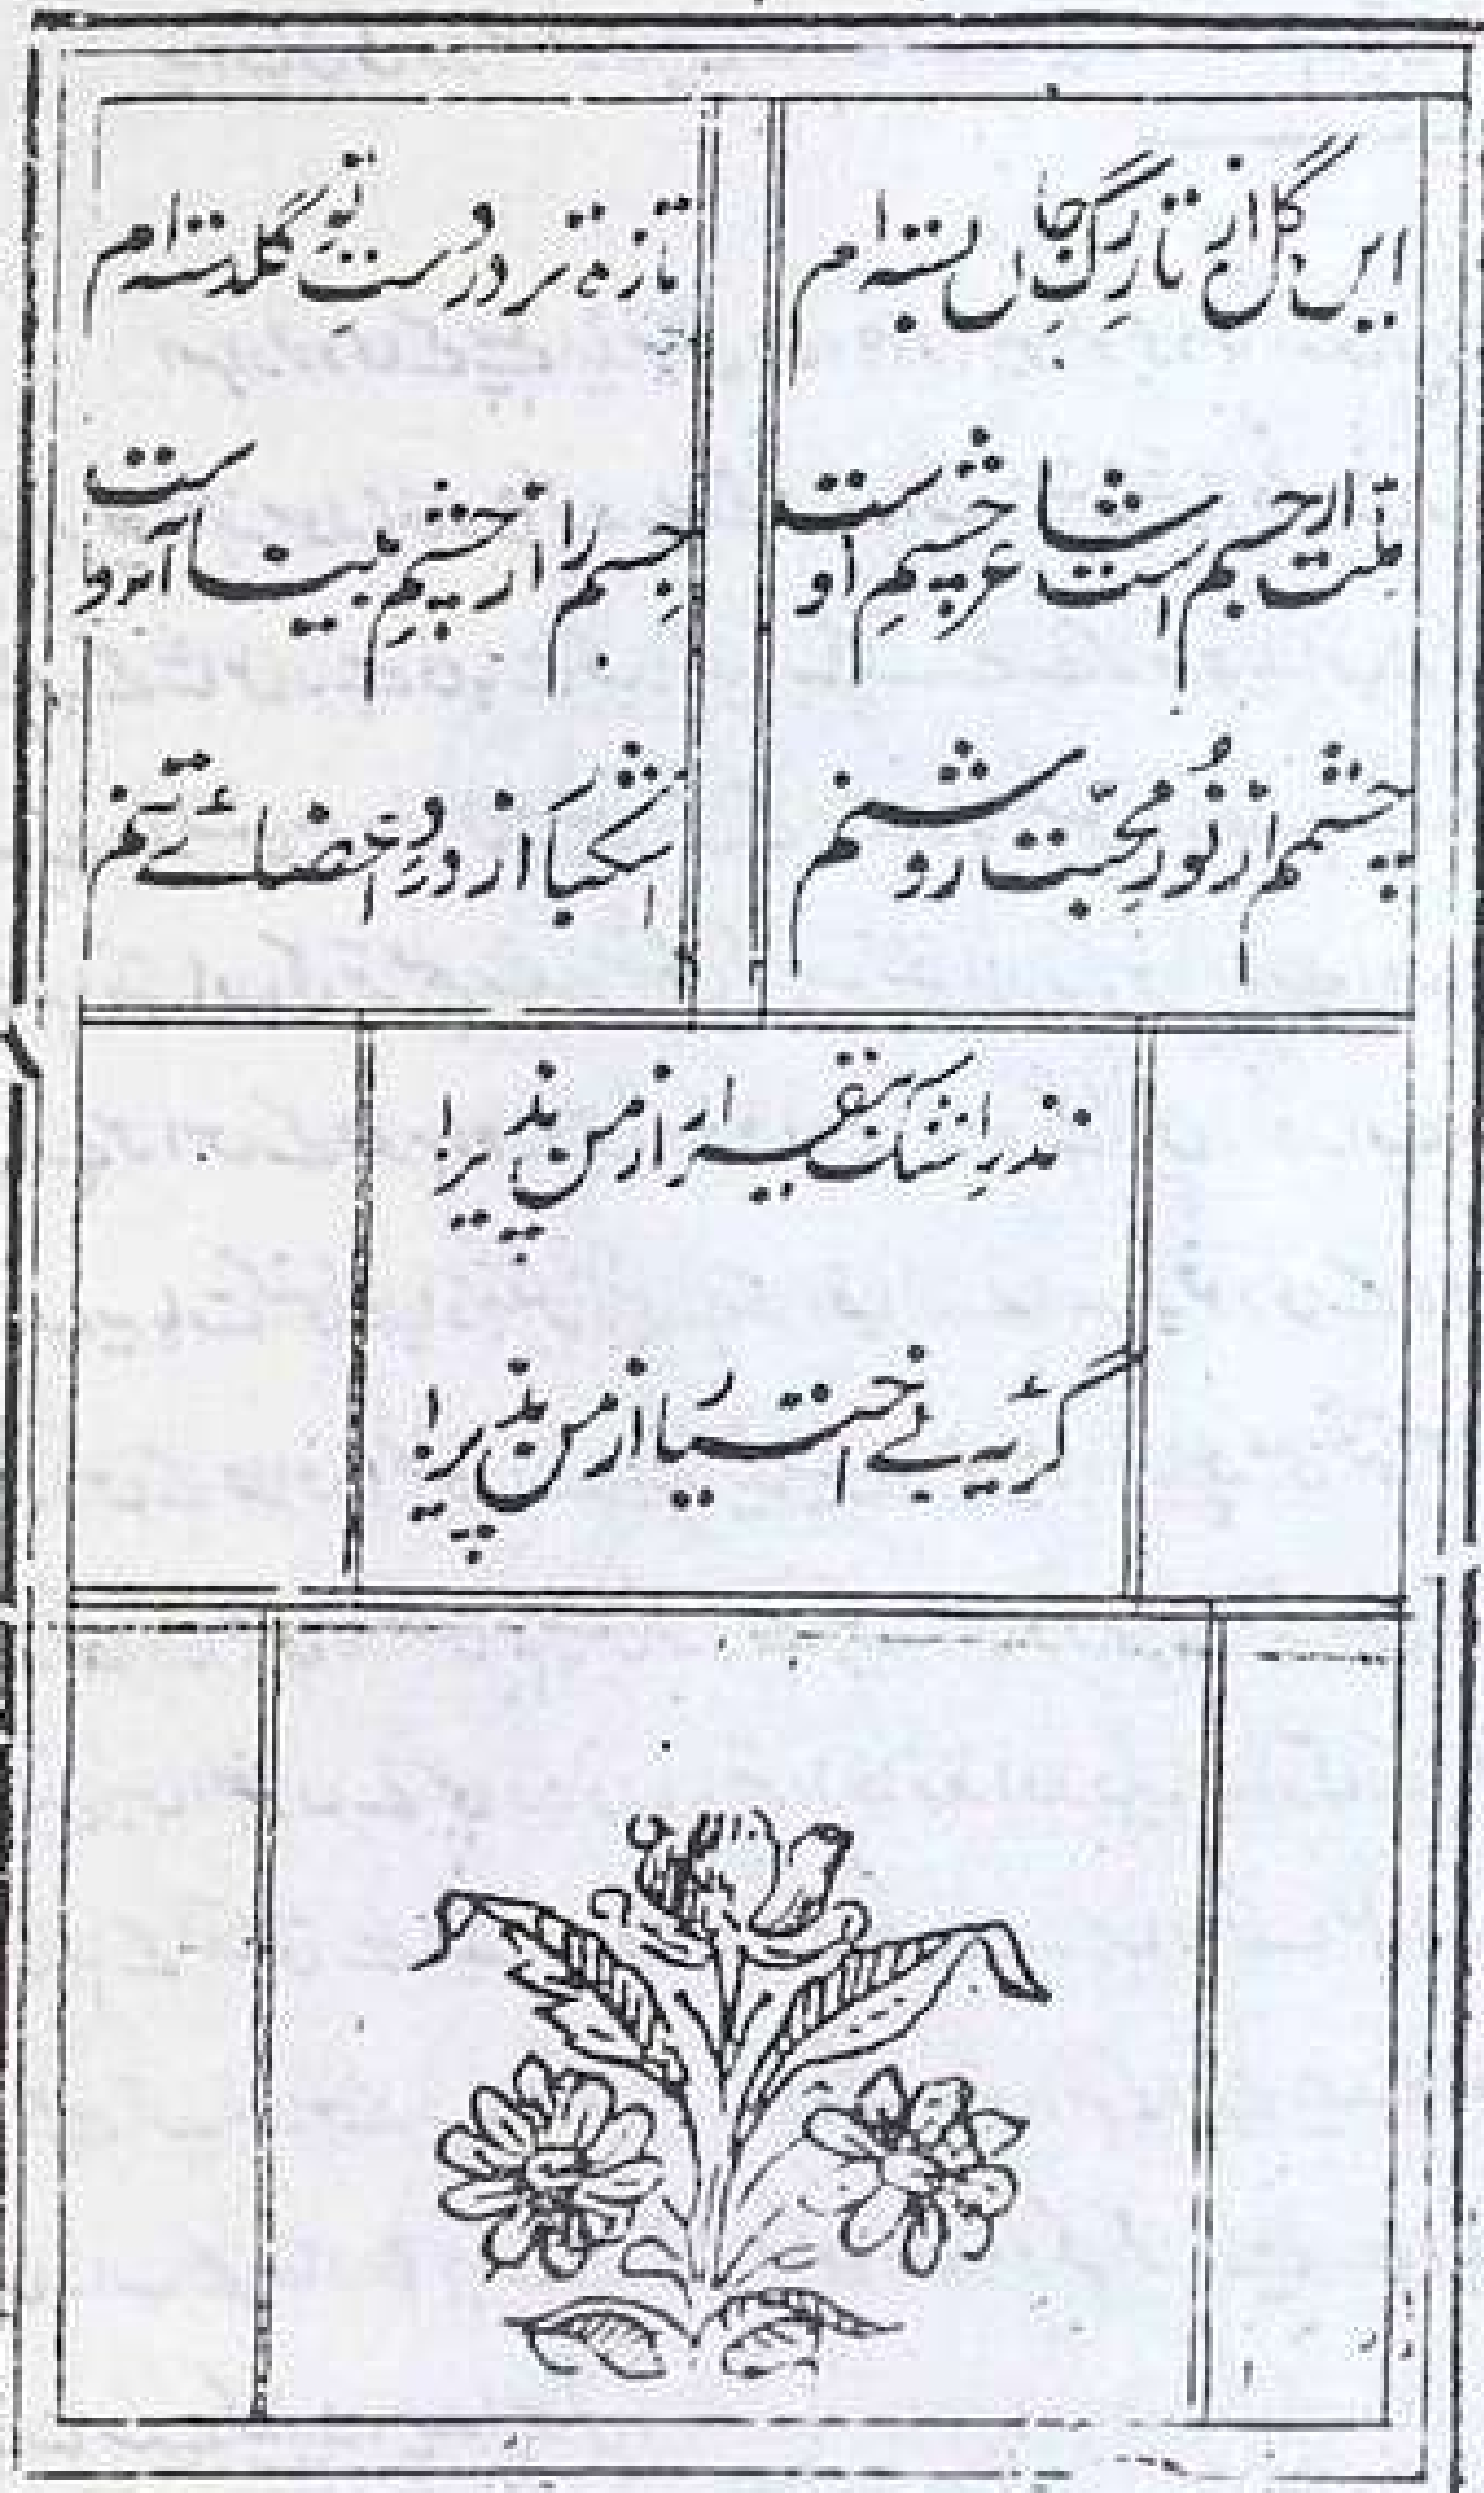 ایں گل از تارِ رگِ جاں بستہ ام
تازہ تر در دستِ تو گلدستہ ام
ملّت ار جسم است شاعر چشمِ اوست
جسم را از چشمِ بینا آبروست
چشمم از نورِ محبّت روشنم
اشکبار از دردِ اعضائے تنم
نذرِ اشکِ بیقرار از من پذیر!
گریۂ بے اختیار از من پذیر!